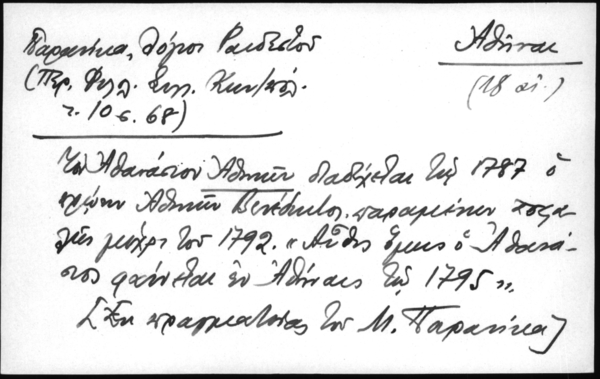 Παρανίκα, Λόγιοι Ραιδεστοῦ
Ἀθῆναι
(Περ. Φιλ. Συλ. Κων/πόλ.
(18 αἰ.)
τ. 10 σ. 68)
Τὸν Ἀθανάσιον Ἀθηνῶν διαδέχεται τῷ 1787 ὁ
πρώην Ἀθηνῶν Βενέδικτος, παραμείνας
μέχρι τοῦ 1792. « Αὖθις ὅμως ὁ Ἀθανά-
σιος φαίνεται ἐν Ἀθήναις τῷ 1795 ».
[Ἐκ πραγματείας τοῦ Μ. Παρανίκα]